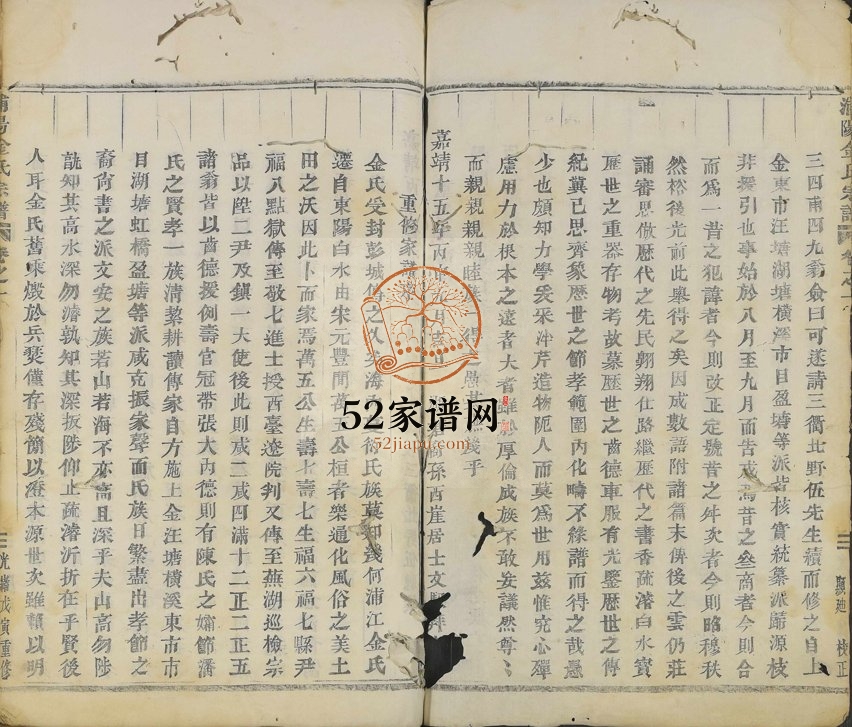 浦陽金氏宗譜
卷之一
三四甫四九翁僉曰可遂請三衢北野伍先生續而修之自上
金東市汪塘湖塘橫溪市目盈塘等派若核實統纂派歸源枝
非援引也事始於八月至九月而告成焉昔之叅商者今則合
而爲一昔之犯諱者今則改正定號昔之舛次者今則昭穆秩
然裕後光前此舉得之矣因成數語附諸篇末俾後之雲仍莊
誦審思倣歷代之先民翺翔仕路繼歷代之書香疏濬白水寶
歷世之重器存物考故慕歷世之齒德車服有光鑒歷世之傳
紀冀已思齊象歷世之節孝範圍內化疇不綠譜而得之哉愚
少也頗知力學爰采泮芹造物阨人而莫爲世用茲惟究心殫
慮用力於根本之遠者大者 厚倫成族不敢妄議然尊
而親親親親睦族 乎
嘉靖十五年丙申九月 裔孫西崖居士文
顯廸 校正
重修家譜
金氏受封彭城傳之久 氏族莫知幾何浦江金氏
遷自東陽白水由宋元豐間萬五公桓者樂通化風俗之美土
田之沃因此卜而家焉萬五公生壽七壽七生福六福七縣尹
福八點獄傳至敬七進士授西臺遼院判又傳至蕪湖巡檢宗
品以陞二尹及鎮一大使後此則成二成四滿十二正二正五
諸翁皆以齒德援例壽官冠帶張大內德則有陳氏之孀節潘
氏之賢孝一族清棻耕讀傳家自方施上金江塘橫溪東市市
目湖塘虹橋盈塘等派咸克振家聲而氏族日繁盡出孝節之
裔尙書之派文安之族若山若海不亦高且深乎夫山高勿陟
孰知其高水深勿濬孰知其深扳陟仰止疏濬沂折在乎賢後
人耳金氏舊乘燬於兵燹僅存殘簡以澄本源世次雖賴以明
浦陽金氏宗譜
卷之一
光緒戊寅重修
52家谱网
52jiapu.com